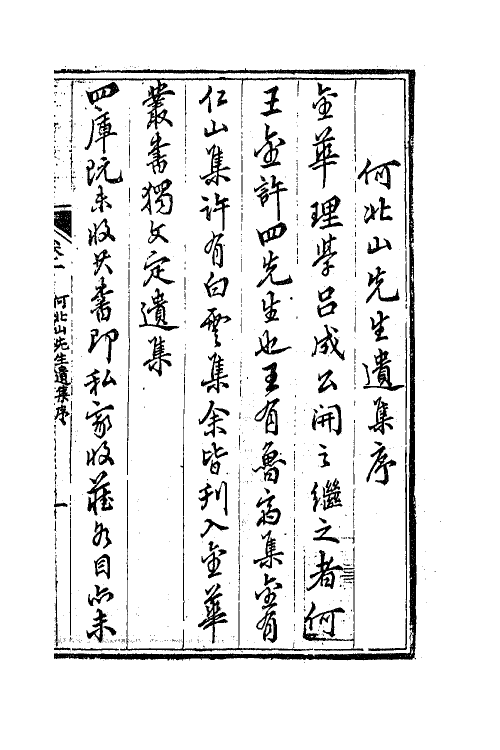 何北山先生遺集序
金華理學呂成公開之繼之者何
王金許四先生也王有魯齋集金有
仁山集許有白雲集余皆刊入金華
叢書獨文定遺集
四庫既未收其書即私家收藏各目亦未
卷一
何北山先生遺集序
一